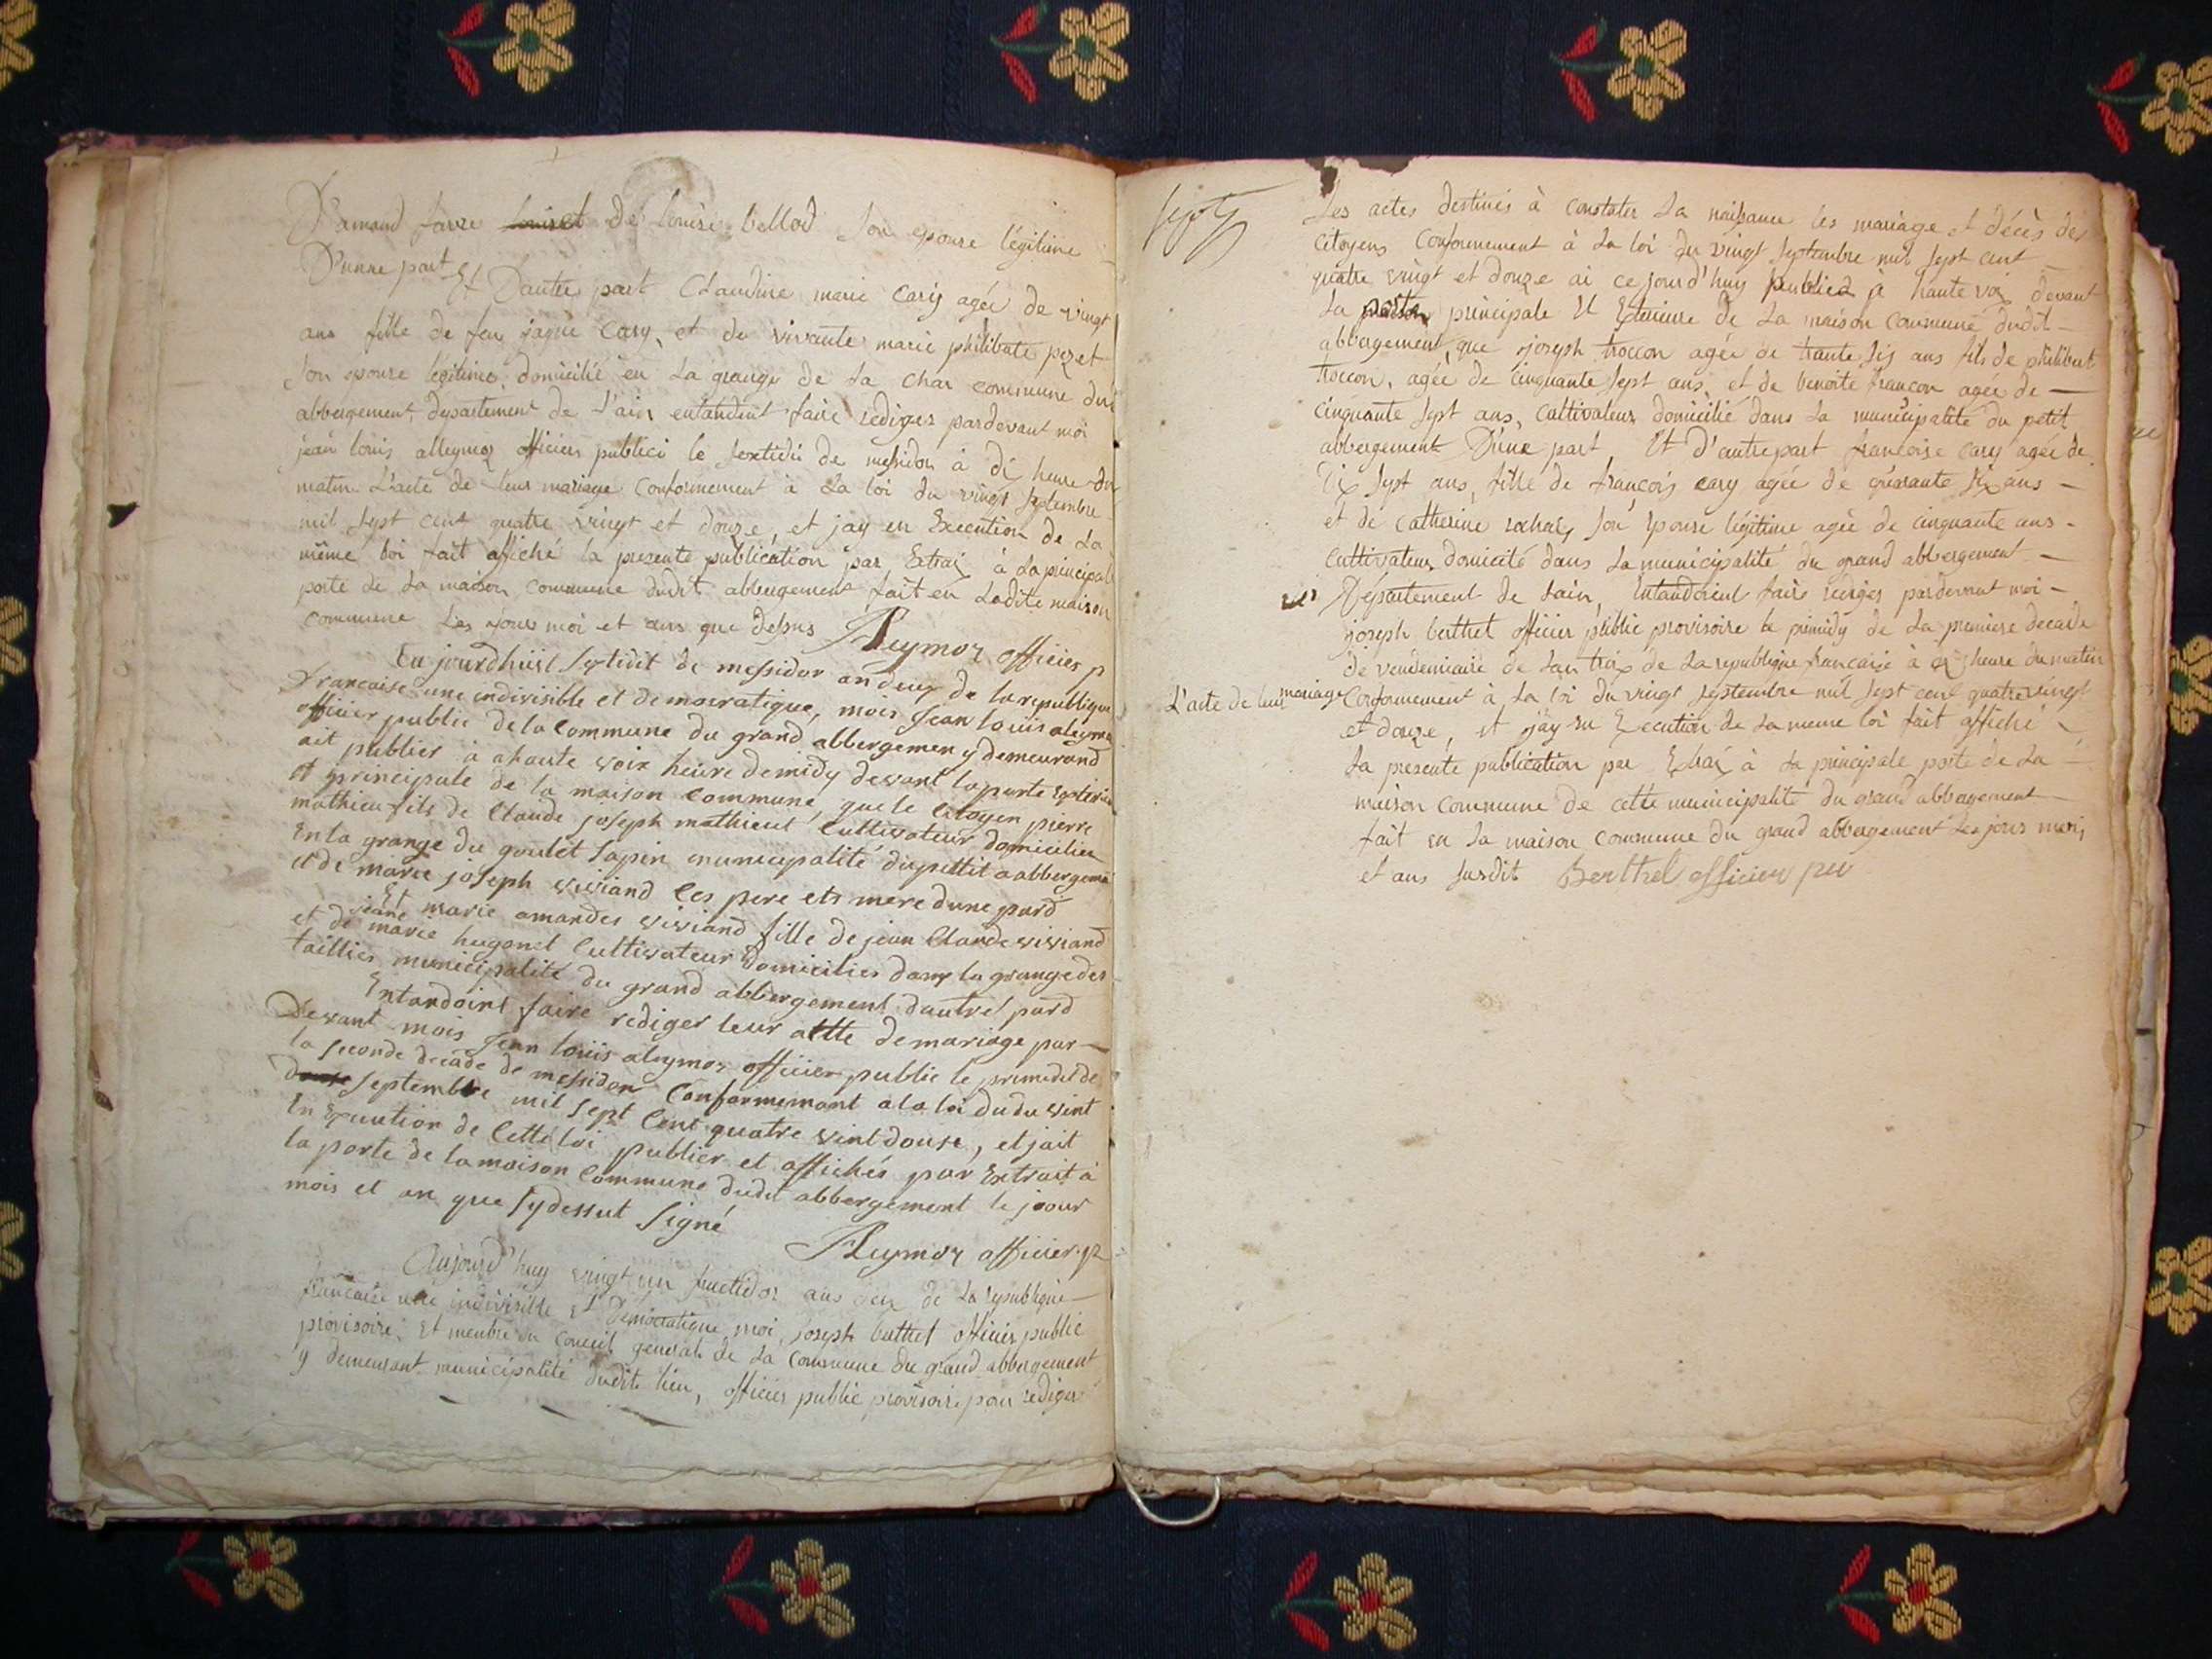 D'amand favre louise de louise bellod son epouse légitime
D'unne part Et D'autre part Claudine marie Cary agée de vingt
ans fille de feu jaque Cary, et de vivante marie philibate pezet
son epouse légitime domicilié en la grange de la char commune dud
abbergement, departement de l'ain entandent faire rediger pardevant moi
jean louis alleymoz officier publici le sextidii de messidor à dix heure du
matin L'acte de leur mariage Conformement à la loi du vingt septembre
mil sept cent quatre vingt et douze, et jay en Execution de la
même loi fait affiché la presente publication par Extrai à la principale
porte de la maison commune dudit abbergement fait en ladite maison
commune les jour moi et ans que dessus Aleymoz officier p
En jourdhüil septidit de messidor an deux de la republique
francaise une indivisible et democratique, mois Jean loüis aleymo
officier public de la Commune du grand abbergemen y demeurand
ait publier à ahaute voix heure demidy devant laporte Exterieu
et principale de la maison Commune, que le Citoyen pierre
mathieu fils de Claude joseph mathieut Cultivateur domicilier
En la grange du goulet sapin municipalité du pettit aabbergeme
et de marie joseph viviand les pere ets mere dune pard
Et jeane marie amandes viviand fille de jean Claude viviand
et de marie hugonet Cultivateur domicilier dans la grange des
taillies municipalité du grand abbergement dautret pard
Entandoint faire rediger leur actte demariage par
devant mois Jean loüis aleymoz officier public le primidit de
la seconde decade de messidor Conformemant a la loi dudu vint
douse septembre mil sept Cent quatre vint douse, et jait
En Execution de Cette loi publier et affichés par Extrait à
la porte de lamaison Commune dudit abbergement le joour
mois et an que sydessut signé
Aleymoz officier p
Aujourd'huy vingt un fructidor ans deux de la republique
francaise une indivisible Et Democratique moi, joseph berthet officier public
provisoire, Et membre du conceil general de la commune du grand abbergement
y demeurant municipalité dudit lieu, officier public provisoire pour rediger
sept
Les actes destinés à constater la naissance les mariage et décès des
citoyens Conformement à la loi du vingt septembre mil sept cent
quatre vingt et douze ai ce jourd'huy publiez à haute voix devant
la porte principale Et Exterieure de la maison commune dudit
abbergement, que joseph troccon agée de trante six ans fils de philibert
troccon, agée de cinquante sept ans, et de benoite francon agée de
cinquante sept ans, Cultivateur domicilié dans la municipalité du petit
abbergement D'une part Et D'autre part francoise Cary agée de
Dix sept ans, fille de françois cary agée de quarante six ans
et de Catherine son epouse légitime agée de cinquante ans
Cultivateur domicilé dans la municipalité du grand abbergement
Département de Lain, Entandoient faire rédiger pardevant moi
joseph berthet officier public provisoire le primidy de la premiere decade
de vendemiaire de lan trois de la republique francaise à heure du matin
L'acte de leur mariage Conformement à la loi du vingt septembre mil sept cent quatre vingt
et douze, et jay en Execution de la meme loi fait affiché
la presente publication par Extrai à la principale porte de la
maison commune de cette municipalité du grand abbergement
fait en la maison commune du grand abbergement les jour mois
et ans susdit Berthet officier pu